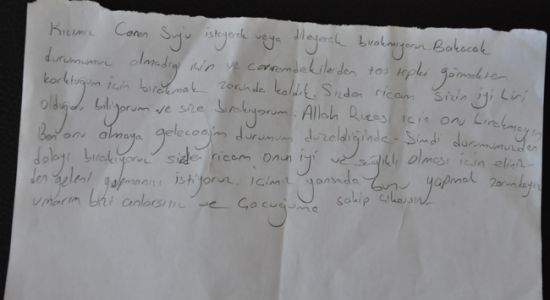 Kızımız Canan Suyu isteyerek veya dileyerek bırakmıyoruz. Bakacak
durumumuz olmadığı için ve çevremdekilerden ters tepki görmekten
korktuğum için bırakmak zorunda kaldık. Sizden ricam sizin iyi biri
olduğunuzu biliyorum ve size bırakıyorum. Allah Rızası için onu bırakmayın
Ben onu almaya geleceğim durumum düzeldiğinde. Şimdi durumumuzdan
dolayı bırakıyoruz sizden ricam onun iyi ve sağlıklı olması için eliniz-
den geleni yapmanızı istiyoruz. içimiz yansada bunu yapmak zorundayız
umarım bizi anlarsınız ve Çocuğuma sahip çıkarsınız